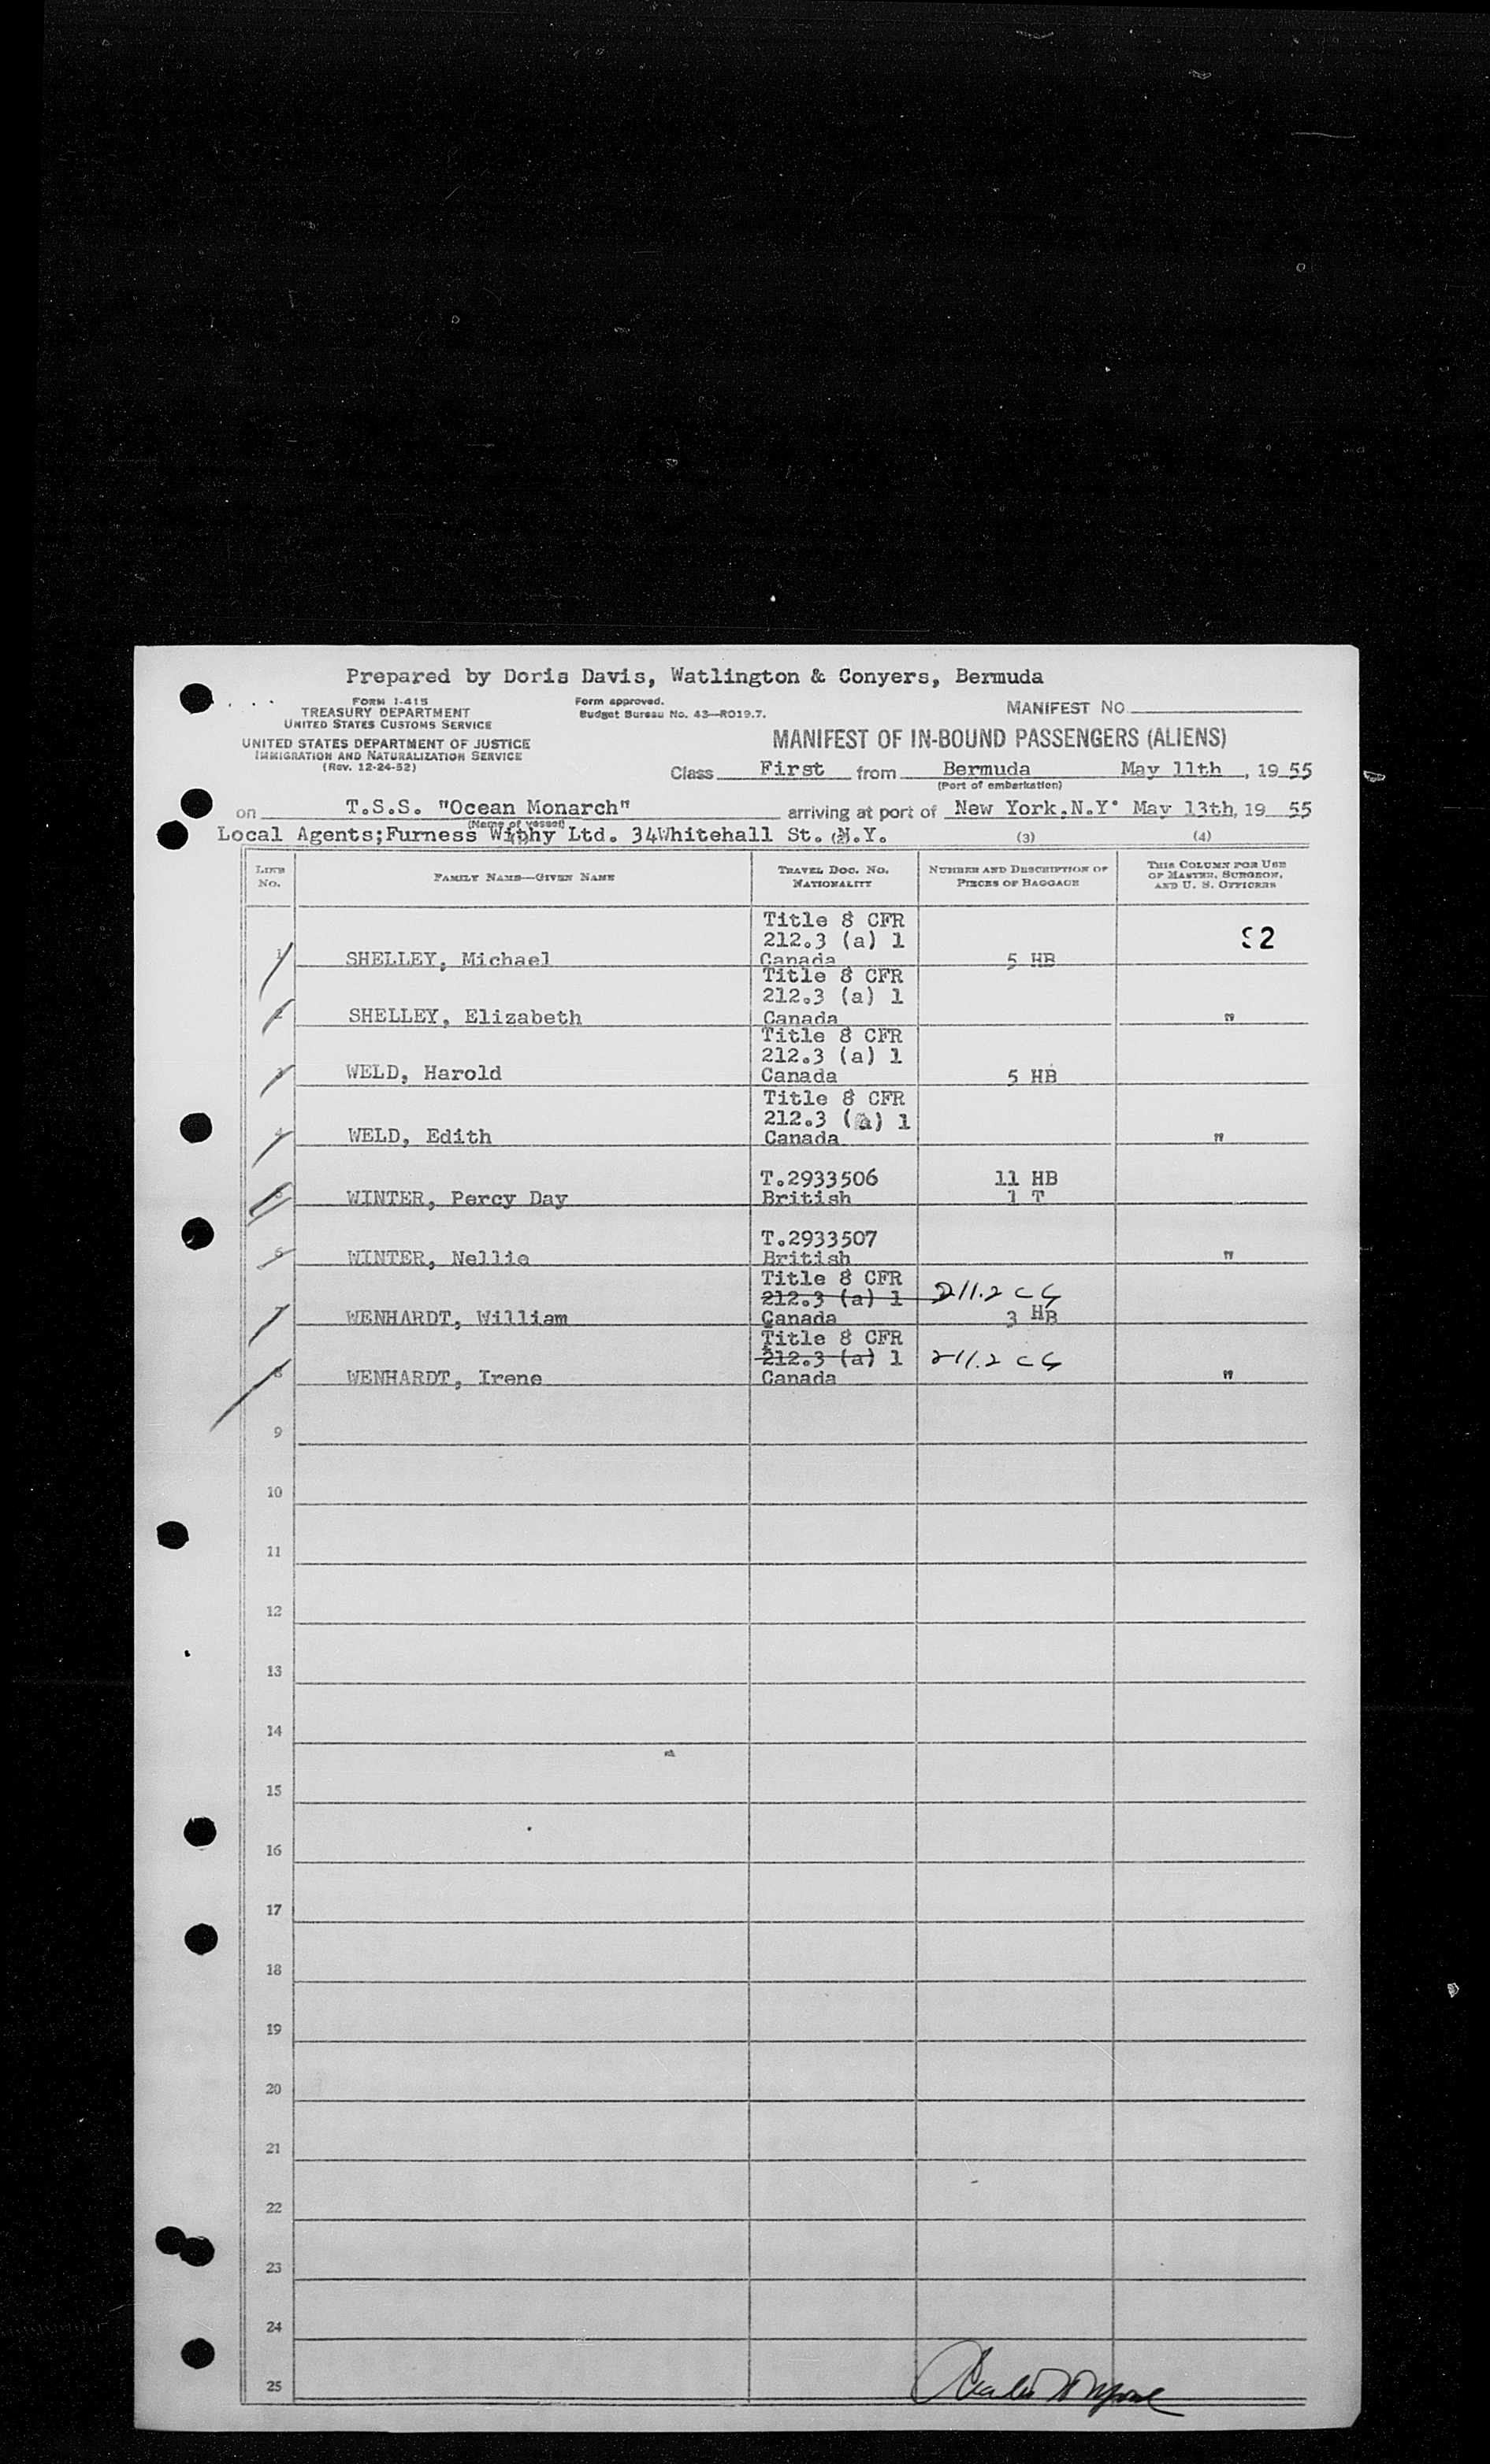 Prepared by Doris Davis, Watlington & Conyers, Bermuda
FORM I-415
TREASURY DEPARTMENT
UNITED STATES CUSTOMS SERVICE
Form approved.
Budget Bureau No. 43—RO19.7.
MANIFEST NO
UNITED STATES DEPARTMENT OF JUSTICE
IMMIGRATION AND NATURALIZATION SERVICE
(Rev. 12-24-52)
MANIFEST OF IN-BOUND PASSENGERS (ALIENS)
Class First from Bermuda May 11th, 19 55
(Port of embarkation)
on T.S.S. "Ocean Monarch" arriving at port of New York, N.Y. May 13th, 19 55
(Name of vessel)
Local Agents;Furness Withy Ltd. 34Whitehall St. N.Y.
(1) (2) (3) (4)
LINE NO.
FAMILY NAME—GIVEN NAME
TRAVEL DOC. NO. NATIONALITY
NUMBER AND DESCRIPTION OF PIECES OF BAGGAGE
THIS COLUMN FOR USE OF MASTER, SURGEON, AND U. S. OFFICERS
Title 8 CFR
212.3 (a) 1 92
1 SHELLEY, Michael Canada 5 HB
Title 8 CFR
212.3 (a) 1
2 SHELLEY, Elizabeth Canada "
Title 8 CFR
212.3 (a) 1
3 WELD, Harold Canada 5 HB
Title 8 CFR
212.3 (a) 1
4 WELD, Edith Canada "
T.2933506 11 HB
5 WINTER, Percy Day British 1 T
T.2933507
6 WINTER, Nellie British "
Title 8 CFR
212.3 (a) 1 211.2
7 WENHARDT, William Canada 3 HB
Title 8 CFR
212.3 (a) 1 211.2
8 WENHARDT, Irene Canada "
9
10
11
12
13
14
15
16
17
18
19
20
21
22
23
24
25